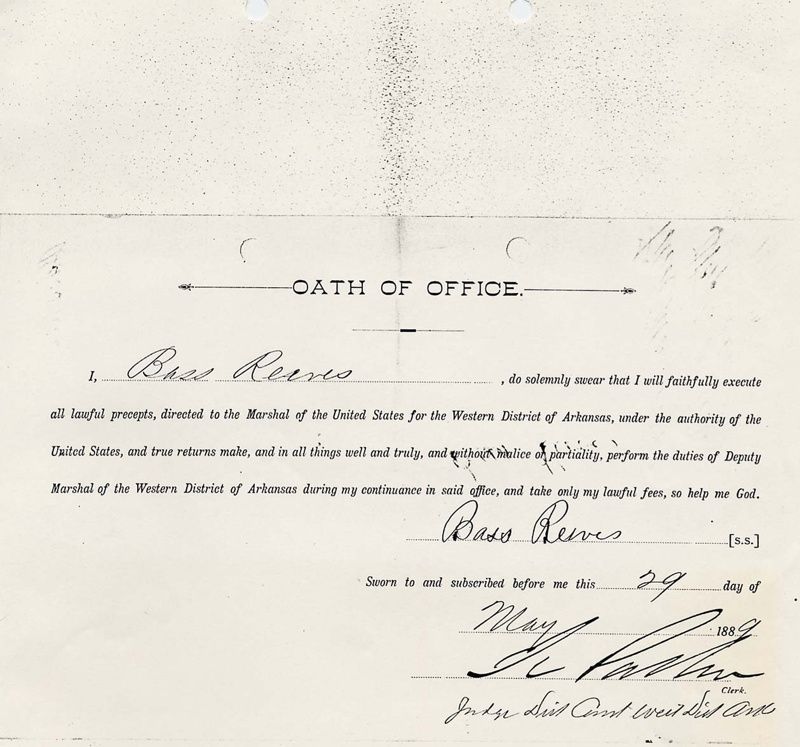 OATH OF OFFICE.
I, Bass Reeves, do solemnly swear that I will faithfully execute
all lawful precepts, directed to the Marshal of the United States for the Western District of Arkansas, under the authority of the
United States, and true returns make, and in all things well and truly, and without malice or partiality, perform the duties of Deputy
Marshal of the Western District of Arkansas during my continuance in said office, and take only my lawful fees, so help me God.
Bass Reeves [S.S.]
Sworn to and subscribed before me this 29 day of
May 1889
Parker
Clerk.
Judge Dist Court West Dist Ark